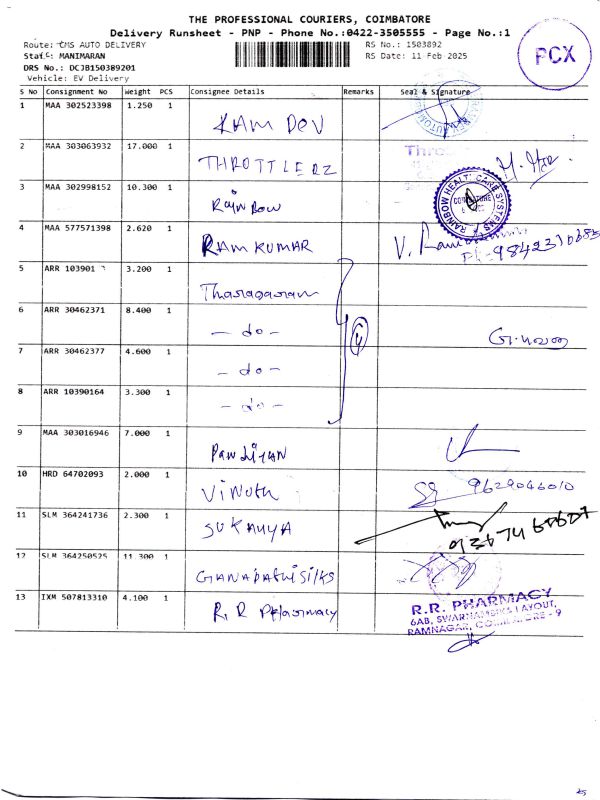 THE PROFESSIONAL COURIERS, COIMBATORE
Delivery Runsheet - PNP - Phone No.:0422-3505555 - Page No.:1
Route: CMS AUTO DELIVERY
RS No.: 1503892
Staff: MANIMARAN
RS Date: 11 Feb 2025
DRS No.: DCJB150389201
Vehicle: EV Delivery
PCX
S No Consignment No Weight PCS Consignee Details Remarks Seal & Signature
1 MAA 302523398 1.250 1 RAM DEV
2 MAA 303063932 17.000 1 THROTTLERZ
3 MAA 302998152 10.300 1 Rainbow
RAINBOW HEALTH CARE SYSTEMS
4 MAA 577571398 2.620 1 RAMKUMAR
5 ARR 103901 3.200 1
6 ARR 30462371 8.400 1 - do -
4
7 ARR 30462377 4.600 1 - do -
8 ARR 10390164 3.300 1 - do -
9 MAA 303016946 7.000 1 Pandiyan
10 HRD 64702093 2.000 1 Vinoth 9629046010
11 SLM 364241736 2.300 1 SUKANYA
12 SLM 364250525 11.300 1 GANAPATHI SILKS
13 IXM 507813310 4.100 1 R.R Pharmacy
R.R. PHARMACY
6AB, SWARNAMBIKA LAYOUT,
RAMNAGAR, COIMBATORE - 9